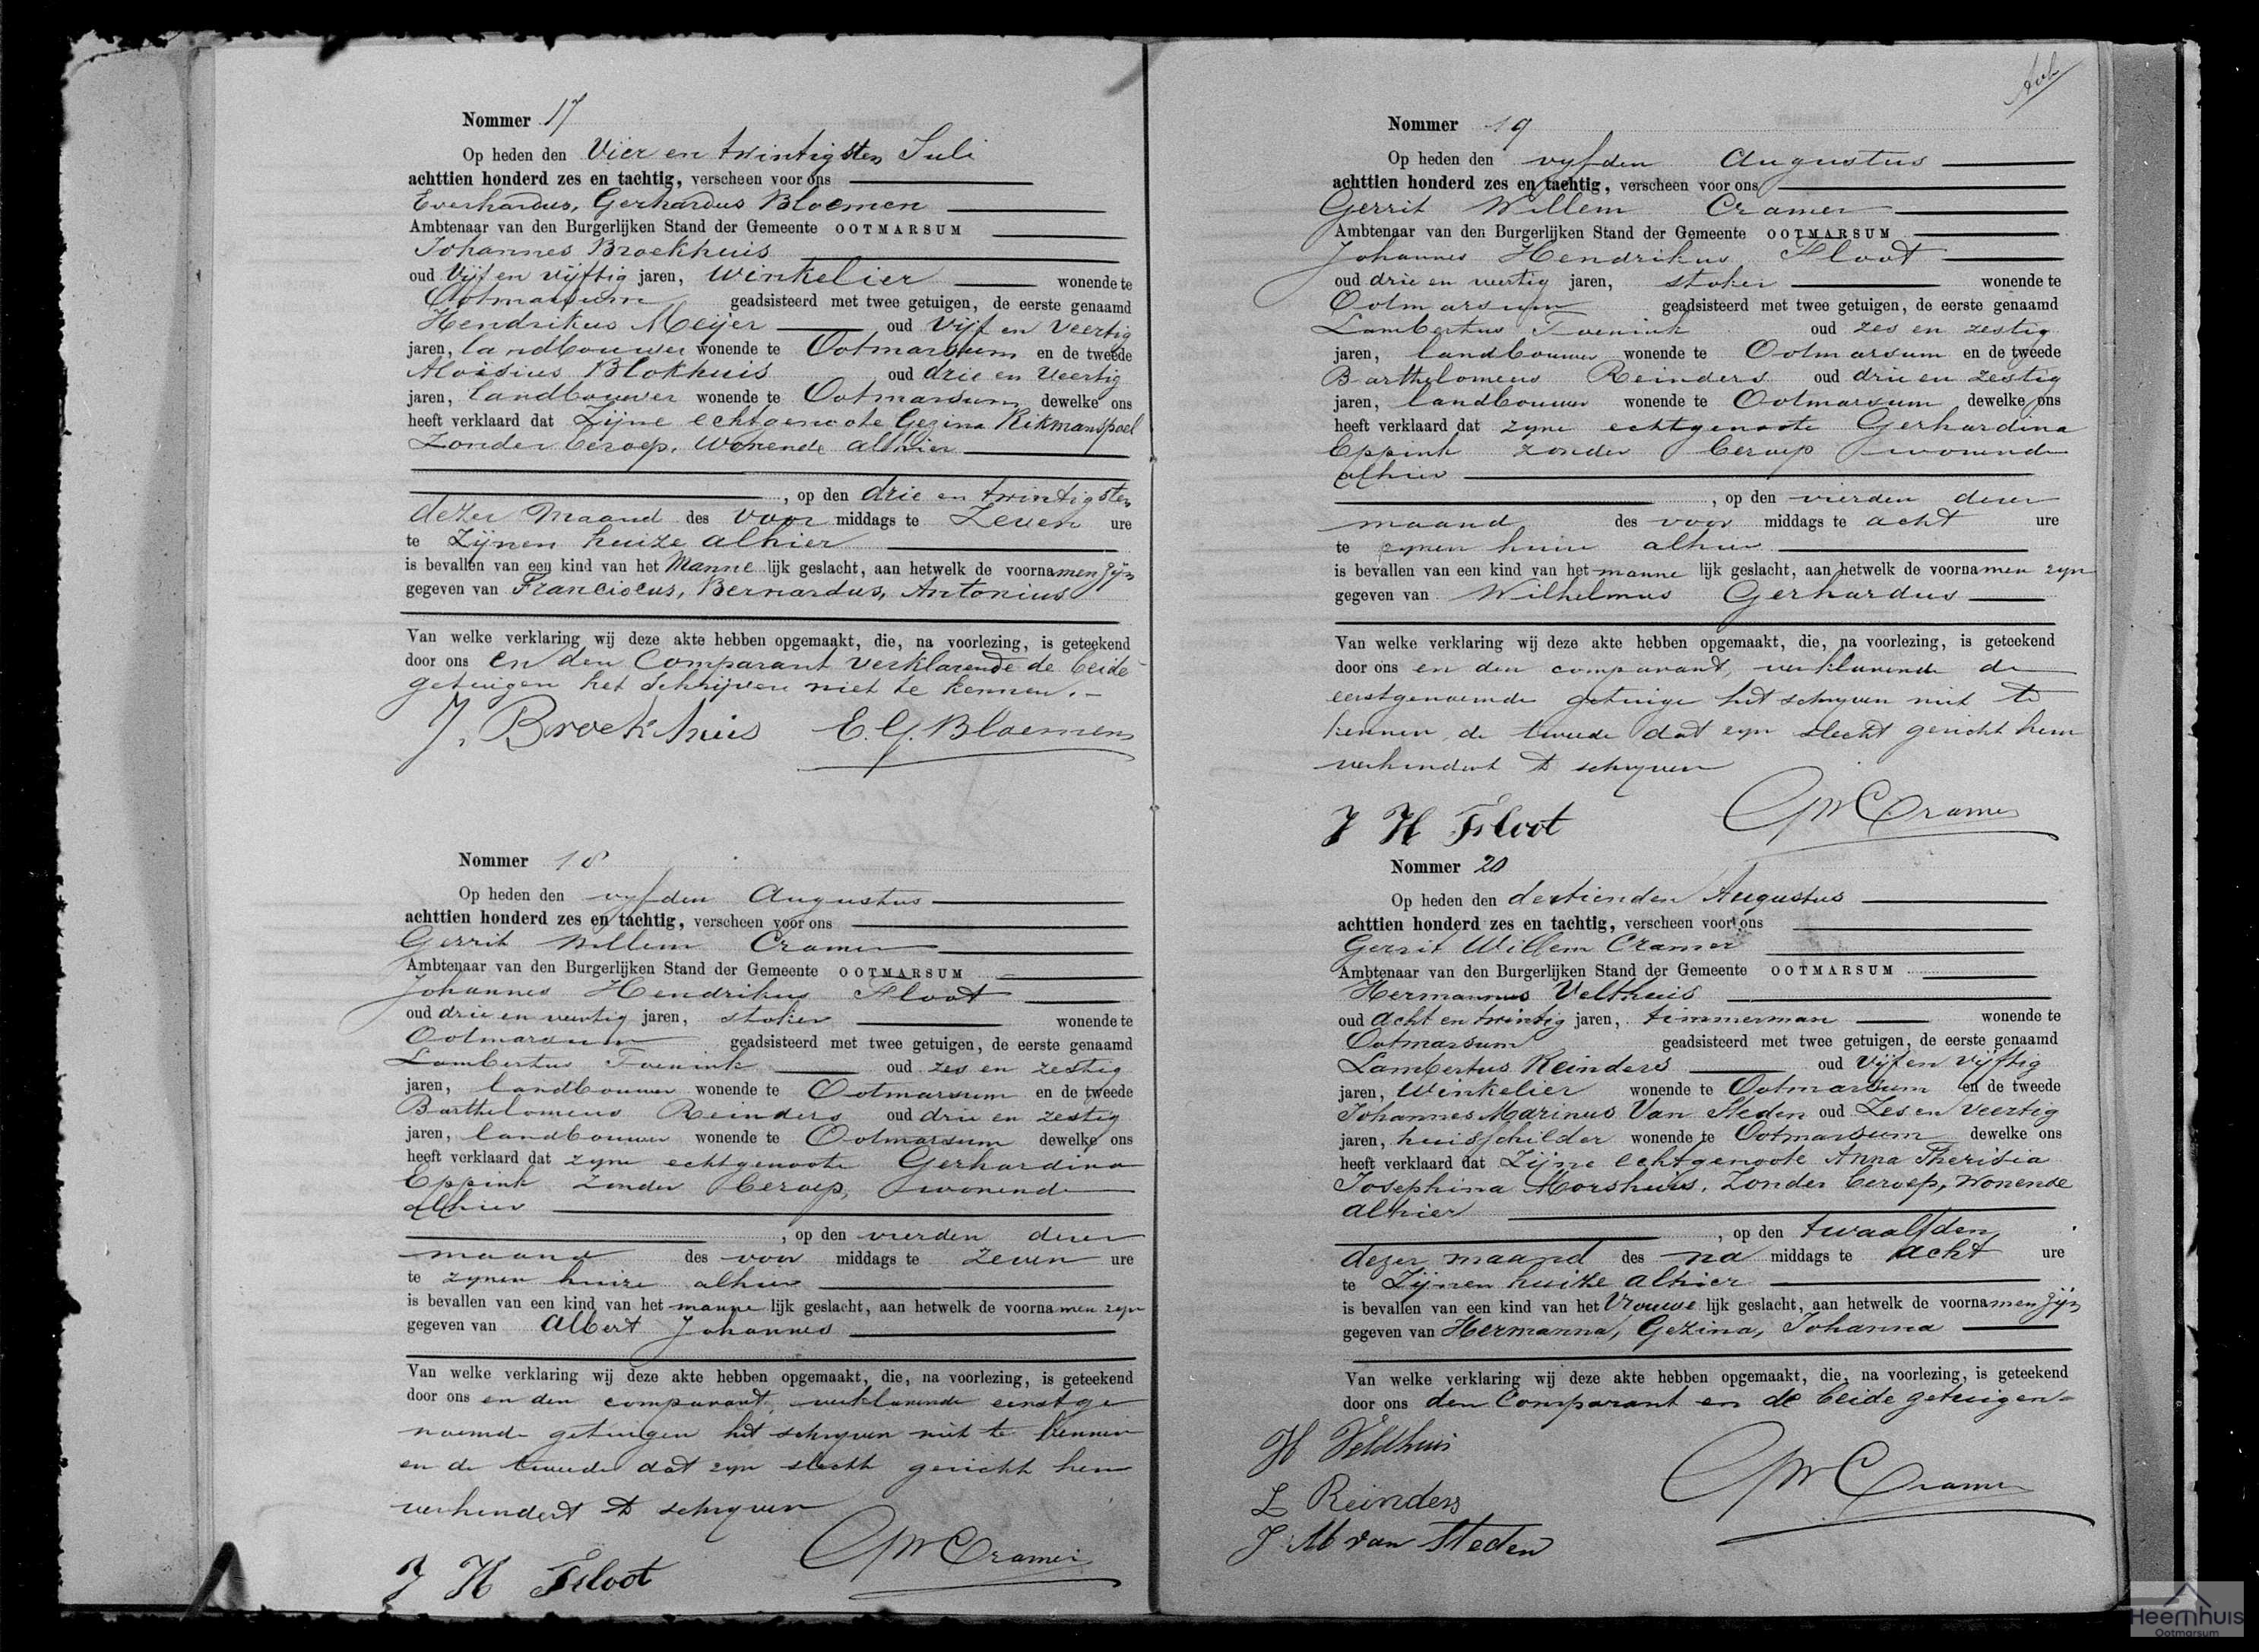 Nommer 17
Op heden den Vier en twintigsten Juli
achttien honderd zes en tachtig, verscheen voor ons
Everhardus, Gerhardus Bloemen
Ambtenaar van den Burgerlijken Stand der Gemeente OOTMARSUM
Johannes Broekhuis
oud Vijf en vijftig jaren, winkelier wonende te
Ootmarsum geadsisteerd met twee getuigen, de eerste genaamd
Hendrikus Meijer oud Vijf en Veertig
jaren, landbouwer wonende te Ootmarsum en de tweede
Aloisius Blokhuis oud drie en Veertig
jaren, landbouwer wonende te Ootmarsum dewelke ons
heeft verklaard dat Zijne echtgenoote Gezina Rikmanspoel
Zonder beroep, Wonende alhier
, op den drie en twintigsten
dezer Maand des Voor middags te Zeven ure
te Zijnen huize alhier
is bevallen van een kind van het Manne lijk geslacht, aan hetwelk de voornamen zijn
gegeven van Franciscus, Bernardus, Antonius
Van welke verklaring wij deze akte hebben opgemaakt, die, na voorlezing, is geteekend
door ons en den Comparant verklarende de beide
getuigen het Schrijven niet te kennen.-
J. Broekhuis E. G. Bloemen
Nommer 18
Op heden den vyfden Augustus
achttien honderd zes en tachtig, verscheen voor ons
Gerrit Willem Cramer
Ambtenaar van den Burgerlijken Stand der Gemeente OOTMARSUM
Johannes Hendrikus Floot
oud drie en veertig jaren, stoker wonende te
Ootmarsum geadsisteerd met twee getuigen, de eerste genaamd
Lambertus Toenink oud zes en zestig
jaren, landbouwer wonende te Ootmarsum en de tweede
Bartholomeus Reinders oud drie en zestig
jaren, landbouwer wonende te Ootmarsum dewelke ons
heeft verklaard dat zyne echtgenoote Gerhardina
Eppink zonder beroep, wonende
alhier
, op den vierden dezer
maand des voor middags te zeven ure
te zynen huize alhier
is bevallen van een kind van het manne lijk geslacht, aan hetwelk de voornamen zyn
gegeven van Albert Johannes
Van welke verklaring wij deze akte hebben opgemaakt, die, na voorlezing, is geteekend
door ons en den comparant, verklarende eerstge
noemde getuigen het schryven niet te kennen
en de tweede dat zyn slecht gezicht hem
verhindert te schryven
J H Floot GW Cramer
Nommer 19
Op heden den vyfden Augustus
achttien honderd zes en tachtig, verscheen voor ons
Gerrit Willem Cramer
Ambtenaar van den Burgerlijken Stand der Gemeente OOTMARSUM
Johannes Hendrikus Floot
oud drie en veertig jaren, stoker wonende te
Ootmarsum geadsisteerd met twee getuigen, de eerste genaamd
Lambertus Toenink oud zes en zestig
jaren, landbouwer wonende te Ootmarsum en de tweede
Bartholomeus Reinders oud drie en zestig
jaren, landbouwer wonende te Ootmarsum dewelke ons
heeft verklaard dat zyne echtgenoote Gerhardina
Eppink zonder beroep wonende
alhier
, op den vierden dezer
maand des voor middags te acht ure
te zynen huize alhier
is bevallen van een kind van het manne lijk geslacht, aan hetwelk de voornamen zyn
gegeven van Wilhelmus Gerhardus
Van welke verklaring wij deze akte hebben opgemaakt, die, na voorlezing, is geteekend
door ons en den comparant, verklarende de
eerstgenoemde getuige het schryven niet te
kennen, de tweede dat zyn slecht gezicht hem
verhindert te schryven
J H Floot GW Cramer
Nommer 20
Op heden den dertienden Augustus
achttien honderd zes en tachtig, verscheen voor ons
Gerrit Willem Cramer
Ambtenaar van den Burgerlijken Stand der Gemeente OOTMARSUM
Hermannus Velthuis
oud acht en twintig jaren, timmerman wonende te
Ootmarsum geadsisteerd met twee getuigen, de eerste genaamd
Lambertus Reinders oud Vijf en vijftig
jaren, Winkelier wonende te Ootmarsum en de tweede
Johannes Marinus Van Steden oud Zes en Veertig
jaren, huisschilder wonende te Ootmarsum dewelke ons
heeft verklaard dat Zijne echtgenoote Anna Therisia
Josephina Morshuis, Zonder beroep, Wonende
alhier
, op den twaalfden
dezer maand des na middags te acht ure
te Zijnen huize alhier
is bevallen van een kind van het Vrouwe lijk geslacht, aan hetwelk de voornamen zijn
gegeven van Hermanna, Gezina, Johanna
Van welke verklaring wij deze akte hebben opgemaakt, die, na voorlezing, is geteekend
door ons den Comparant en de beide getuigen-
H Veldhuis
GW Cramer
L Reinders
J. M van Steden
Heemhuis
Ootmarsum